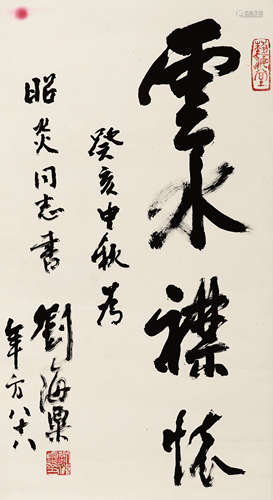 雲水襟懷
癸亥中秋為
昭炎同志書
劉海粟
年方八十八